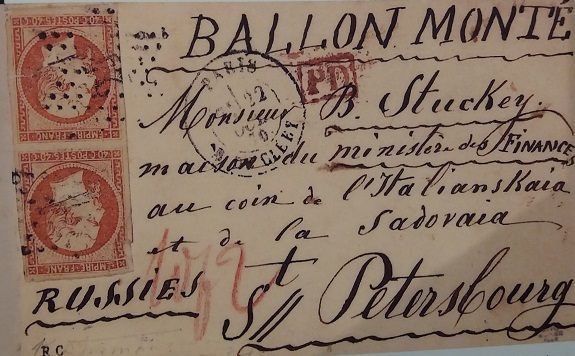 BALLON MONTÉ
PARIS
22
R. DE CLERY
PD
Monsieur B. Stuckey.
maison du ministère des FINANCES
au coin de l'Italianskaia
et de la Sadovaia
RUSSIES
St Petersbourg
EMPIRE FRANC
40 C POSTES 40 C
EMPIRE FRANC
40 C POSTES 40 C
R C